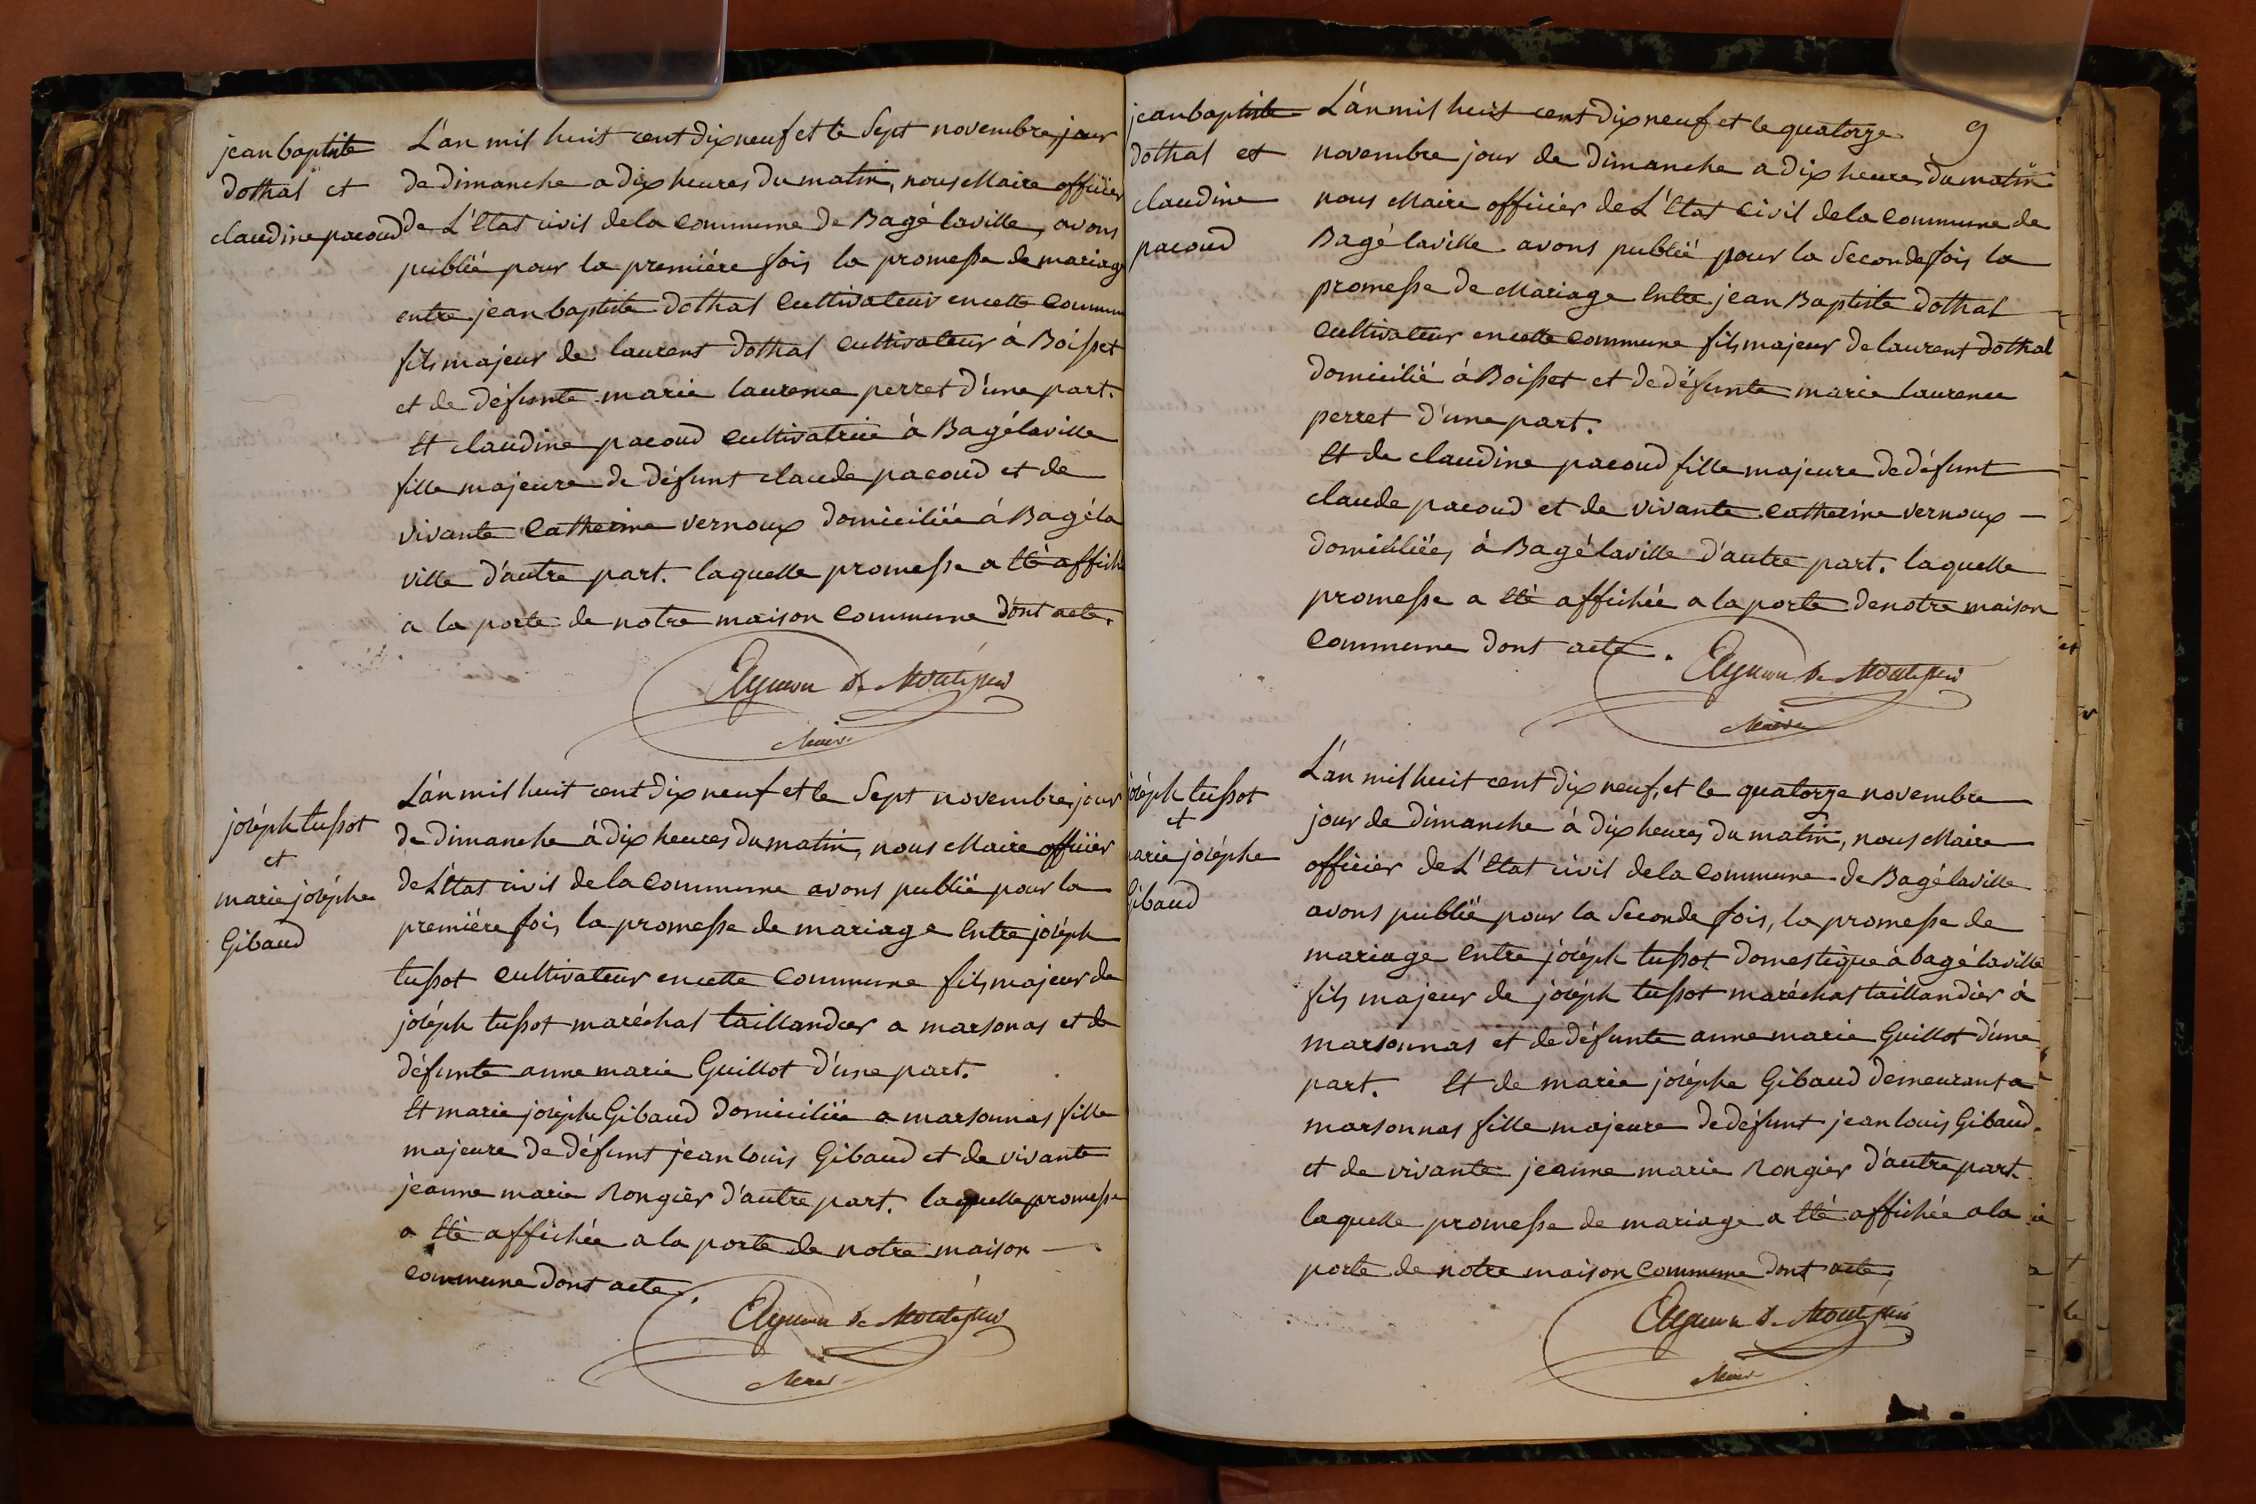 jean baptiste
dothal et
claudine pacoud
L'an mil huit cent dix neuf et le sept novembre jour
de dimanche a dix heures du matin, nous Maire officier
de L'Etat civil de la commune de Bagé laville, avons
publié pour la première fois la promesse de mariage
entre jean baptiste dothal cultivateur en cette commune
fils majeur de laurent dothal cultivateur à Boisset
et de défunte marie laurence perret d'une part.
Et claudine pacoud cultivatrice à Bagé laville
fille majeure de défunt claude pacoud et de
vivante Catherine vernoux domiciliée à Bagé la
ville d'autre part. laquelle promesse a été affichée
a la porte de notre maison commune dont acte.
Aymon de Montépin
Maire
joséph tussot
et
marie joséphe
Gibaud
L'an mil huit cent dix neuf et le sept novembre jour
de dimanche à dix heures du matin, nous Maire officier
de L'Etat civil de la commune avons publié pour la
première fois, la promesse de mariage Entre joséph
tussot cultivateur en cette commune fils majeur de
joséph tussot maréchal taillandier a marsonas et de
défunte anne marie Guillot d'une part.
Et marie joséphe Gibaud domiciliée a marsonnas fille
majeure de défunt jean louis Gibaud et de vivante
jeanne marie Rongier d'autre part. laquelle promesse
a été affichée a la porte de notre maison
commune dont acte.
Aymon de Montépin
Maire
9
jean baptiste
dothal et
claudine
pacoud
L'an mil huit cent dix neuf et le quatorze
novembre jour de dimanche a dix heures du matin
nous Maire officier de L'Etat civil de la commune de
Bagé laville avons publié pour la seconde fois la
promesse de Mariage Entre jean Baptiste dothal
cultivateur en cette commune fils majeur de laurent dothal
domicilié à Boisset et de défunte marie laurence
perret d'une part.
Et de claudine pacoud fille majeure de défunt
claude pacoud et de vivante catherine vernoux
domiciliée, à Bagé laville d'autre part. laquelle
promesse a été affichée a la porte de notre maison
commune dont acte.
Aymon de Montépin
Maire
joséph tussot
et
marie joséphe
Gibaud
L'an mil huit cent dix neuf, et le quatorze novembre
jour de dimanche à dix heures du matin, nous Maire
officier de L'Etat civil de la commune de Bagé laville
avons publié pour la seconde fois, la promesse de
mariage Entre joséph tussot domestique à bagé laville
fils majeur de joséph tussot maréchal taillandier à
marsonnas et de défunte anne marie Guillot d'une
part. Et de marie joséphe Gibaud demeurant a
marsonnas fille majeure de défunt jean louis Gibaud.
et de vivante jeanne marie Rongier d'autre part.
laquelle promesse de mariage a été affichée a la
porte de notre maison commune dont acte.
Aymon de Montépin
Maire